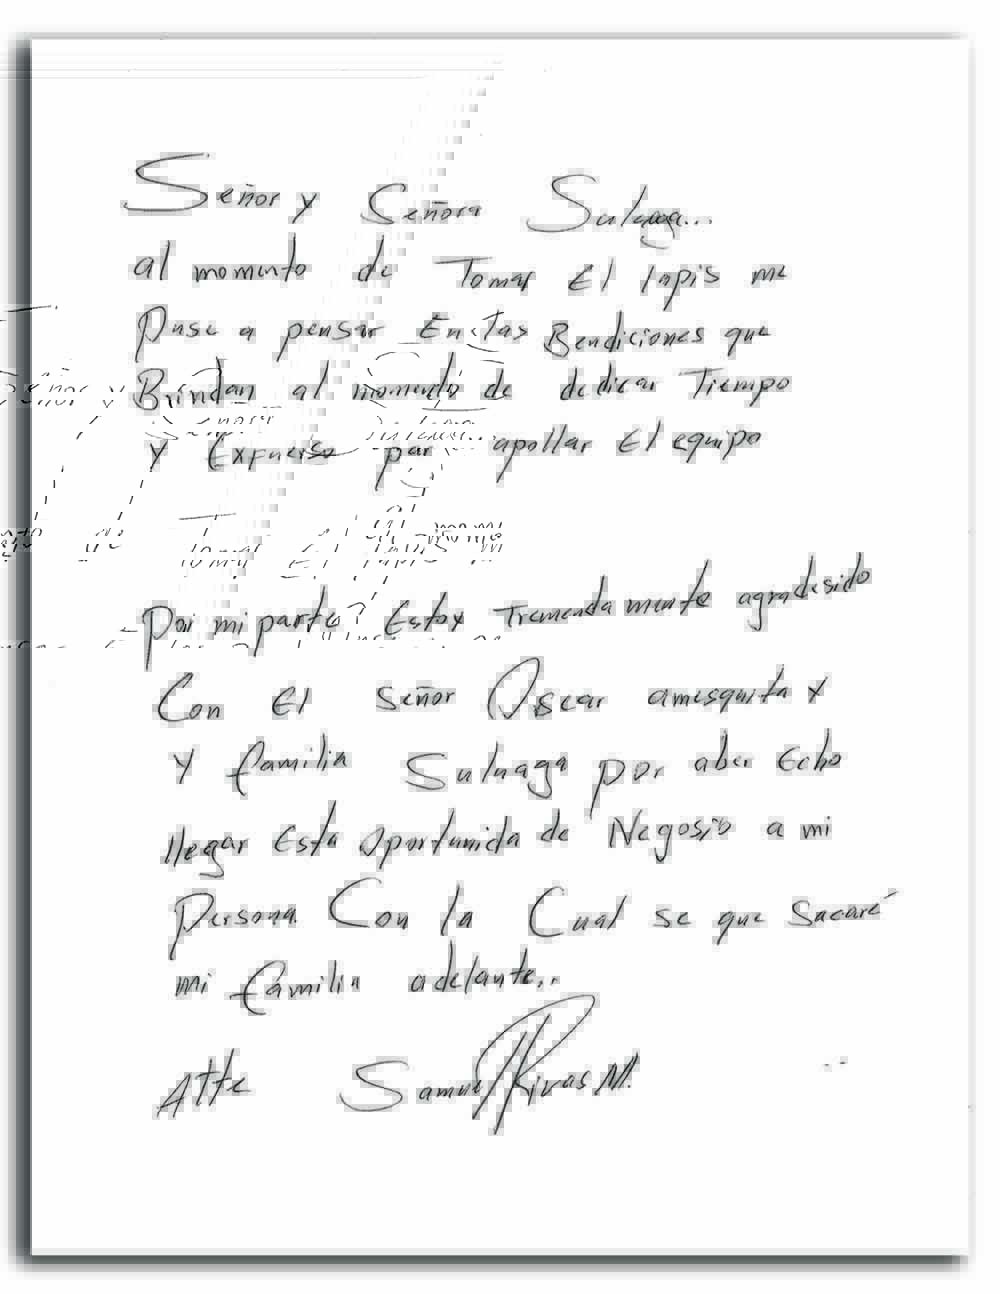 Señor y Señora Suluaga...
al momento de Tomar El lapis me
Puse a pensar En las Bendiciones que
Brindan al momento de dedicar Tiempo
y Exfuerso par apollar El equipo
Por mi parte Estoy Tremendamente agradesido
Con El señor Oscar amesquita y
y familia Suluaga por aber Echo
llegar Esta Oportunida de Negosio a mi
Persona Con la Cual se que Sacaré
mi familia adelante..
Atte Samuel Rivas M.